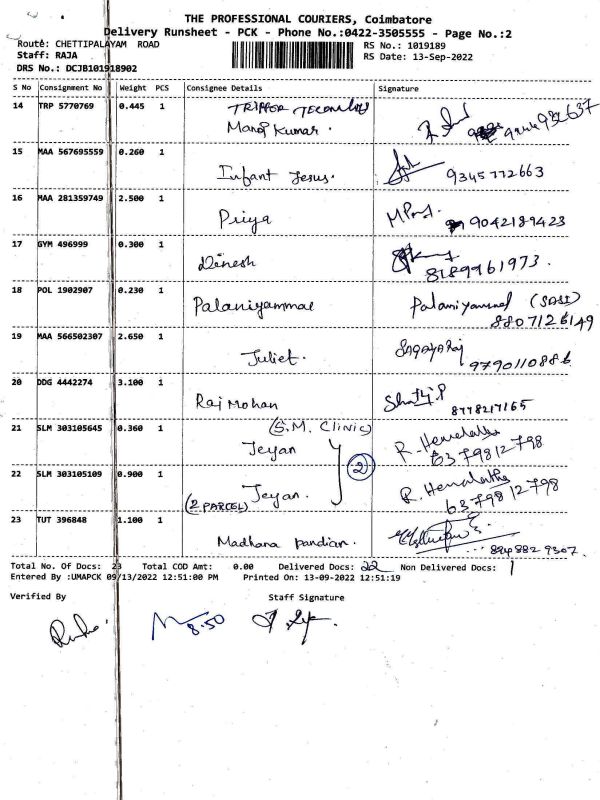 THE PROFESSIONAL COURIERS, Coimbatore
Delivery Runsheet - PCK - Phone No.:0422-3505555 - Page No.:2
Route: CHETTIPALAYAM ROAD RS No.: 1019189
Staff: RAJA RS Date: 13-Sep-2022
DRS No.: DCJB101918902
S No Consignment No Weight PCS Consignee Details Signature
14 TRP 5770769 0.445 1 Manoj Kumar.
15 MAA 567695559 0.260 1 Infant Jesus. 9345772663
16 MAA 281359749 2.500 1 Priya 9042189423
17 GYM 496999 0.300 1 Dinesh 8189961973.
18 POL 1902907 0.230 1 Palaniyammal Palaniyammal (SASI)
8807126149
19 MAA 566502307 2.650 1 Juliet. SAGAYA Raj
9790110886
20 DDG 4442274 3.100 1 Raj Mohan
8778217165
21 SLM 303105645 0.360 1 (S.M. Clinic)
Jeyan R. Hemalatha
6379812798
2
22 SLM 303105109 0.900 1 (2 PARCEL) Jeyan. R. Hemalatha
6379812798
23 TUT 396848 1.100 1 Madhana pandian.
Total No. Of Docs: 23 Total COD Amt: 0.00 Delivered Docs: 22 Non Delivered Docs: 1
Entered By :UMAPCK 09/13/2022 12:51:00 PM Printed On: 13-09-2022 12:51:19
Verified By Staff Signature
8.50